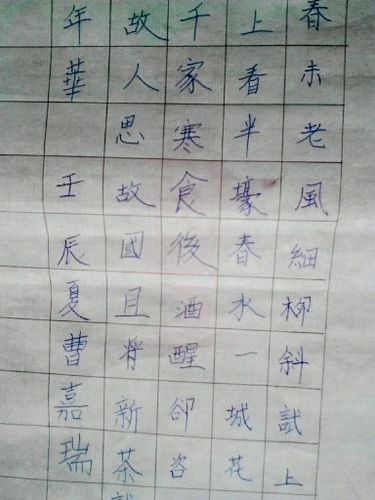 春未老風細柳斜試上
上看半壕春水一城花
千家寒食後酒醒卻咨
故人思故國且將新茶
年華 壬辰夏曹嘉瑞